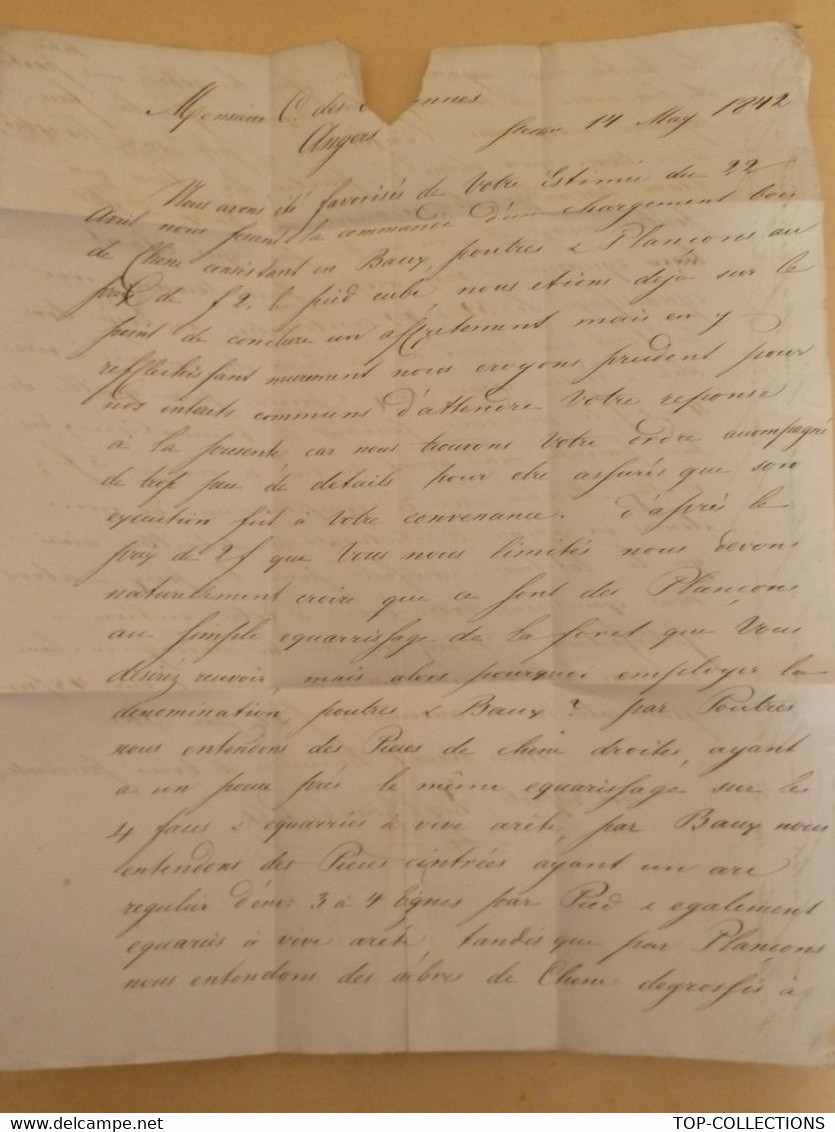 Monsieur C. des
Angers
14 May 1842
Nous avons été favorisés de Votre Estimée du 22
Avril nous la commande d'un chargement bois
de Chene consistant en Baux, poutres & Plançons au
prix de f 2. le pied cube, nous etions dejà sur le
point de conclure un affretement mais en y
reflechissant murement nous croyons prudent pour
nos interets communs d'attendre Votre reponse
à la presente car nous trouvons Votre ordre accompagné
de trop peu de details pour etre assurés que son
execution fut à Votre convenance. d'après le
prix de 2f que Vous nous limités nous devons
naturellement croire que ce sont des Plançons
au simple equarrissage de la foret que Vous
désirez recevoir, mais alors pourquoi employer la
denomination, poutres & Baux? par Poutres
nous entendons des Pieces de chene droites, ayant
a un pouce près le même equarissage sur les
4 faces & equarriés à vive arète, par Baux nous
entendons des Pieces cintrées ayant un arc
regulier d'env: 3 à 4 lignes par Pied & egalement
equariès à vive arète tandis que par Plançons
nous entendons des arbres de Chene degrossis à
TOP-COLLECTIONS